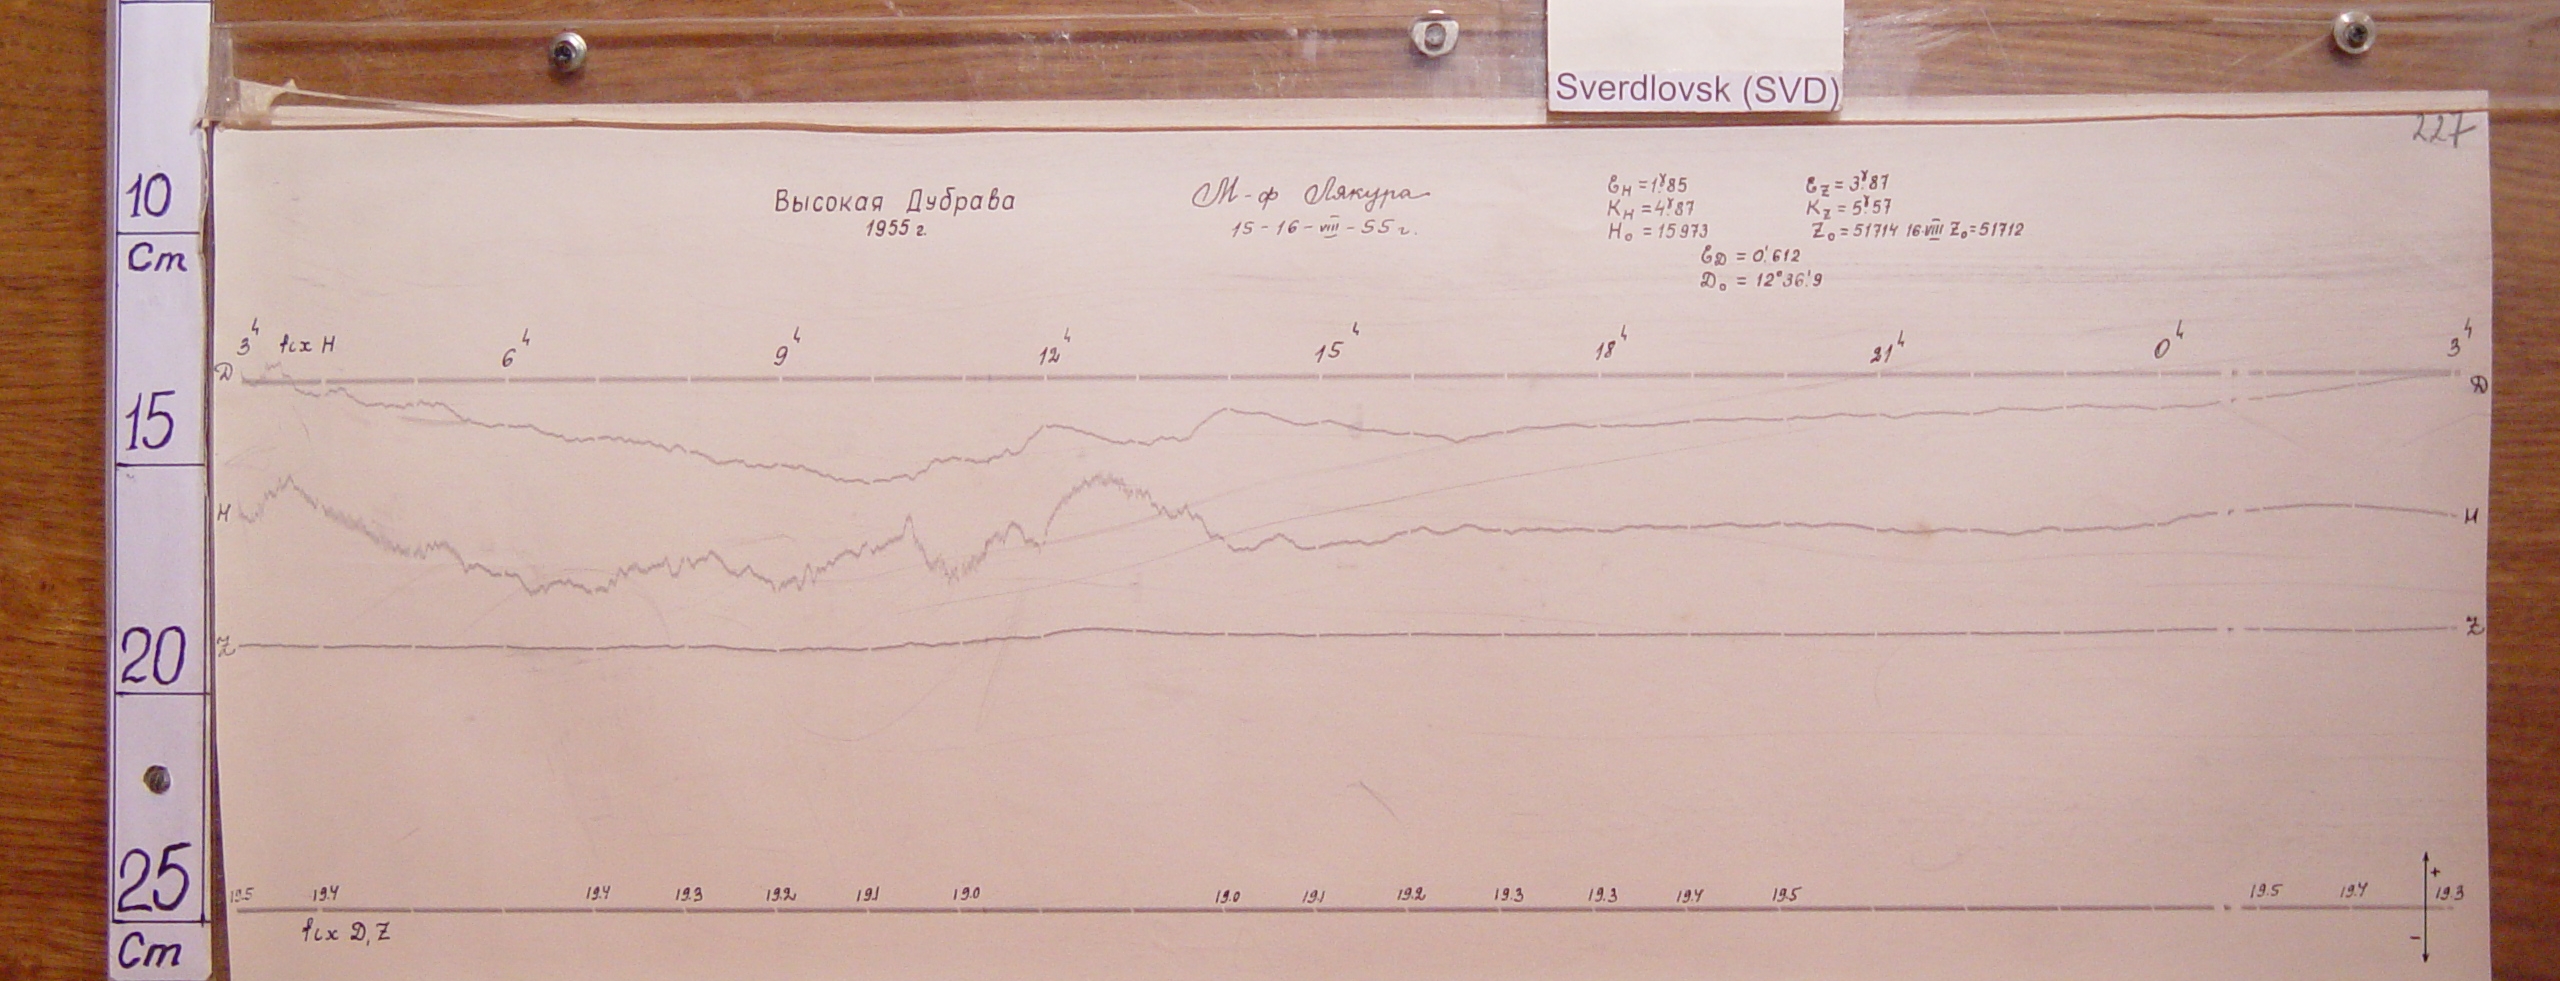 Sverdlovsk (SVD)
227
10
Cm
15
20
25
Cm
Высокая Дубрава
1955 г.
М-ф Лякура
15-16-VIII-55 г.
ε_H = 1.ᵞ85
K_H = 4.ᵞ87
H₀ = 15973
ε_Z = 3.ᵞ87
K_Z = 5.ᵞ57
Z₀ = 51714 16-VIII Z₀=51712
ε_D = 0.'612
D₀ = 12°36.'9
3ч fix H 6ч 9ч 12ч 15ч 18ч 21ч 0ч 3ч
D D
H H
Z Z
19.5 19.4 19.4 19.3 19.2 19.1 19.0 19.0 19.1 19.2 19.3 19.3 19.4 19.5 19.5 19.4 19.3
+
-
fix D, Z